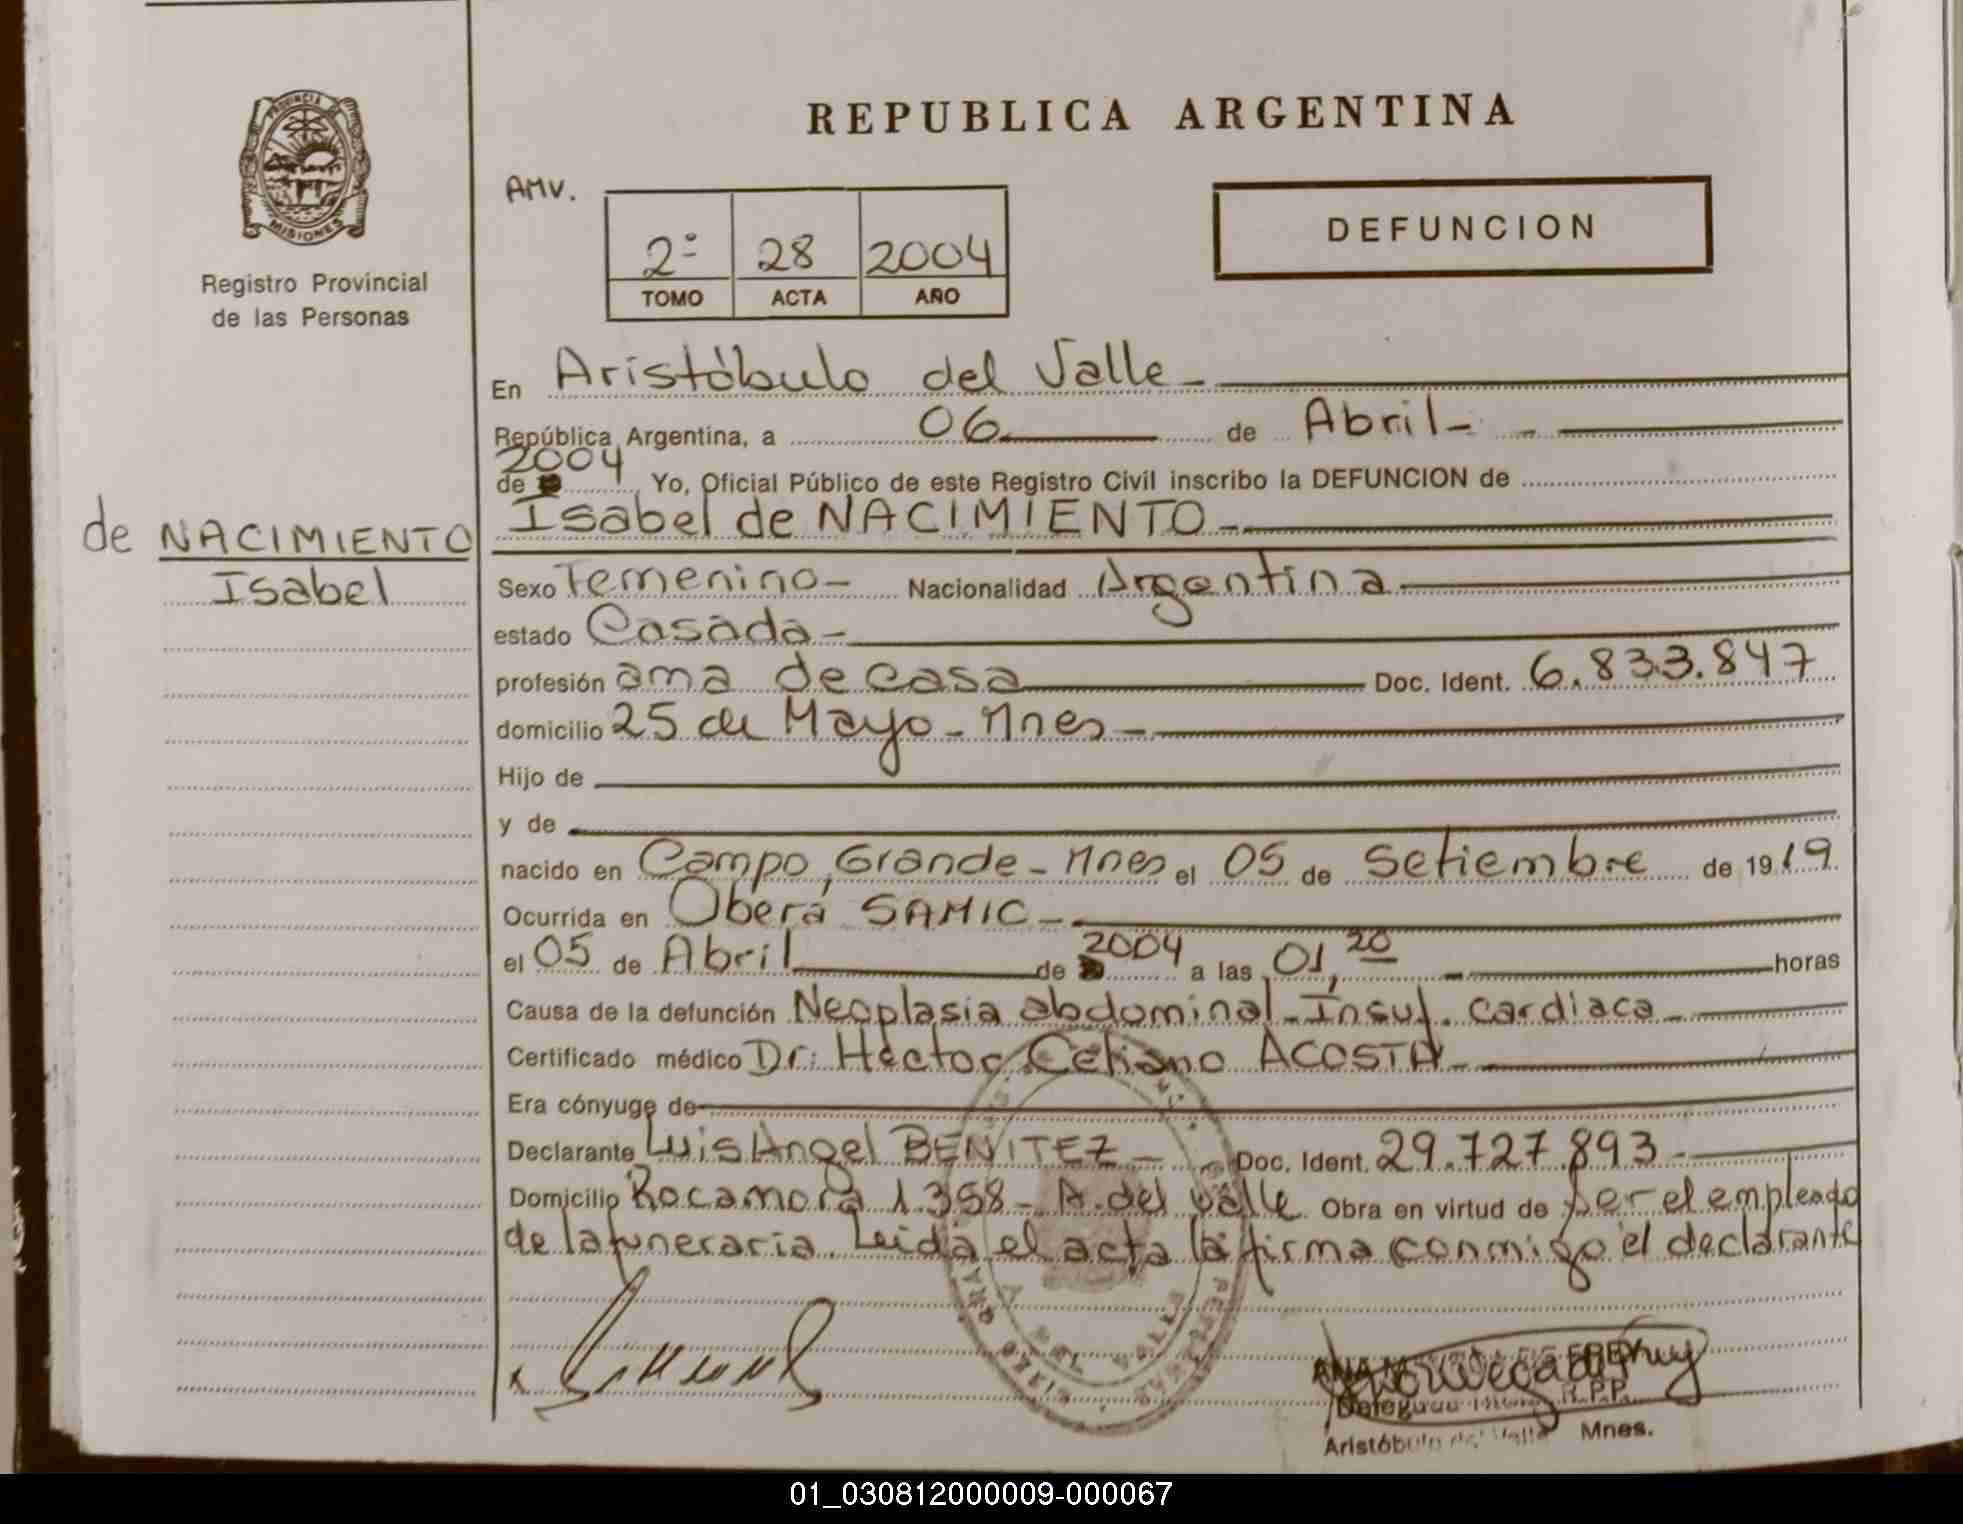 PROVINCIA DE
MISIONES
Registro Provincial
de las Personas
REPUBLICA ARGENTINA
AMV.
2º 28 2004
TOMO ACTA AÑO
DEFUNCION
En Aristóbulo del Valle -
República Argentina, a 06 de Abril -
2004
de Yo, Oficial Público de este Registro Civil inscribo la DEFUNCION de
Isabel de NACIMIENTO -
de NACIMIENTO
Isabel
Sexo Femenino - Nacionalidad Argentina
estado Casada -
profesión ama de casa Doc. Ident. 6.833.847
domicilio 25 de Mayo - Mnes -
Hijo de
y de
nacido en Campo Grande - Mnes el 05 de Setiembre de 1919
Ocurrida en Oberá SAMIC -
el 05 de Abril de 2004 a las 01,20 horas
Causa de la defunción Neoplasia abdominal - Insuf. cardiaca -
Certificado médico Dr: Héctor Celiano ACOSTA -
Era cónyuge de
Declarante Luis Angel BENITEZ - Doc. Ident. 29.727.893 -
Domicilio Rocamora 1.358 - A. del Valle Obra en virtud de ser el empleado
de la funeraria. Leida el acta la firma conmigo el declarante
R.P.P.
Aristóbulo del Valle Mnes.
01_030812000009-000067